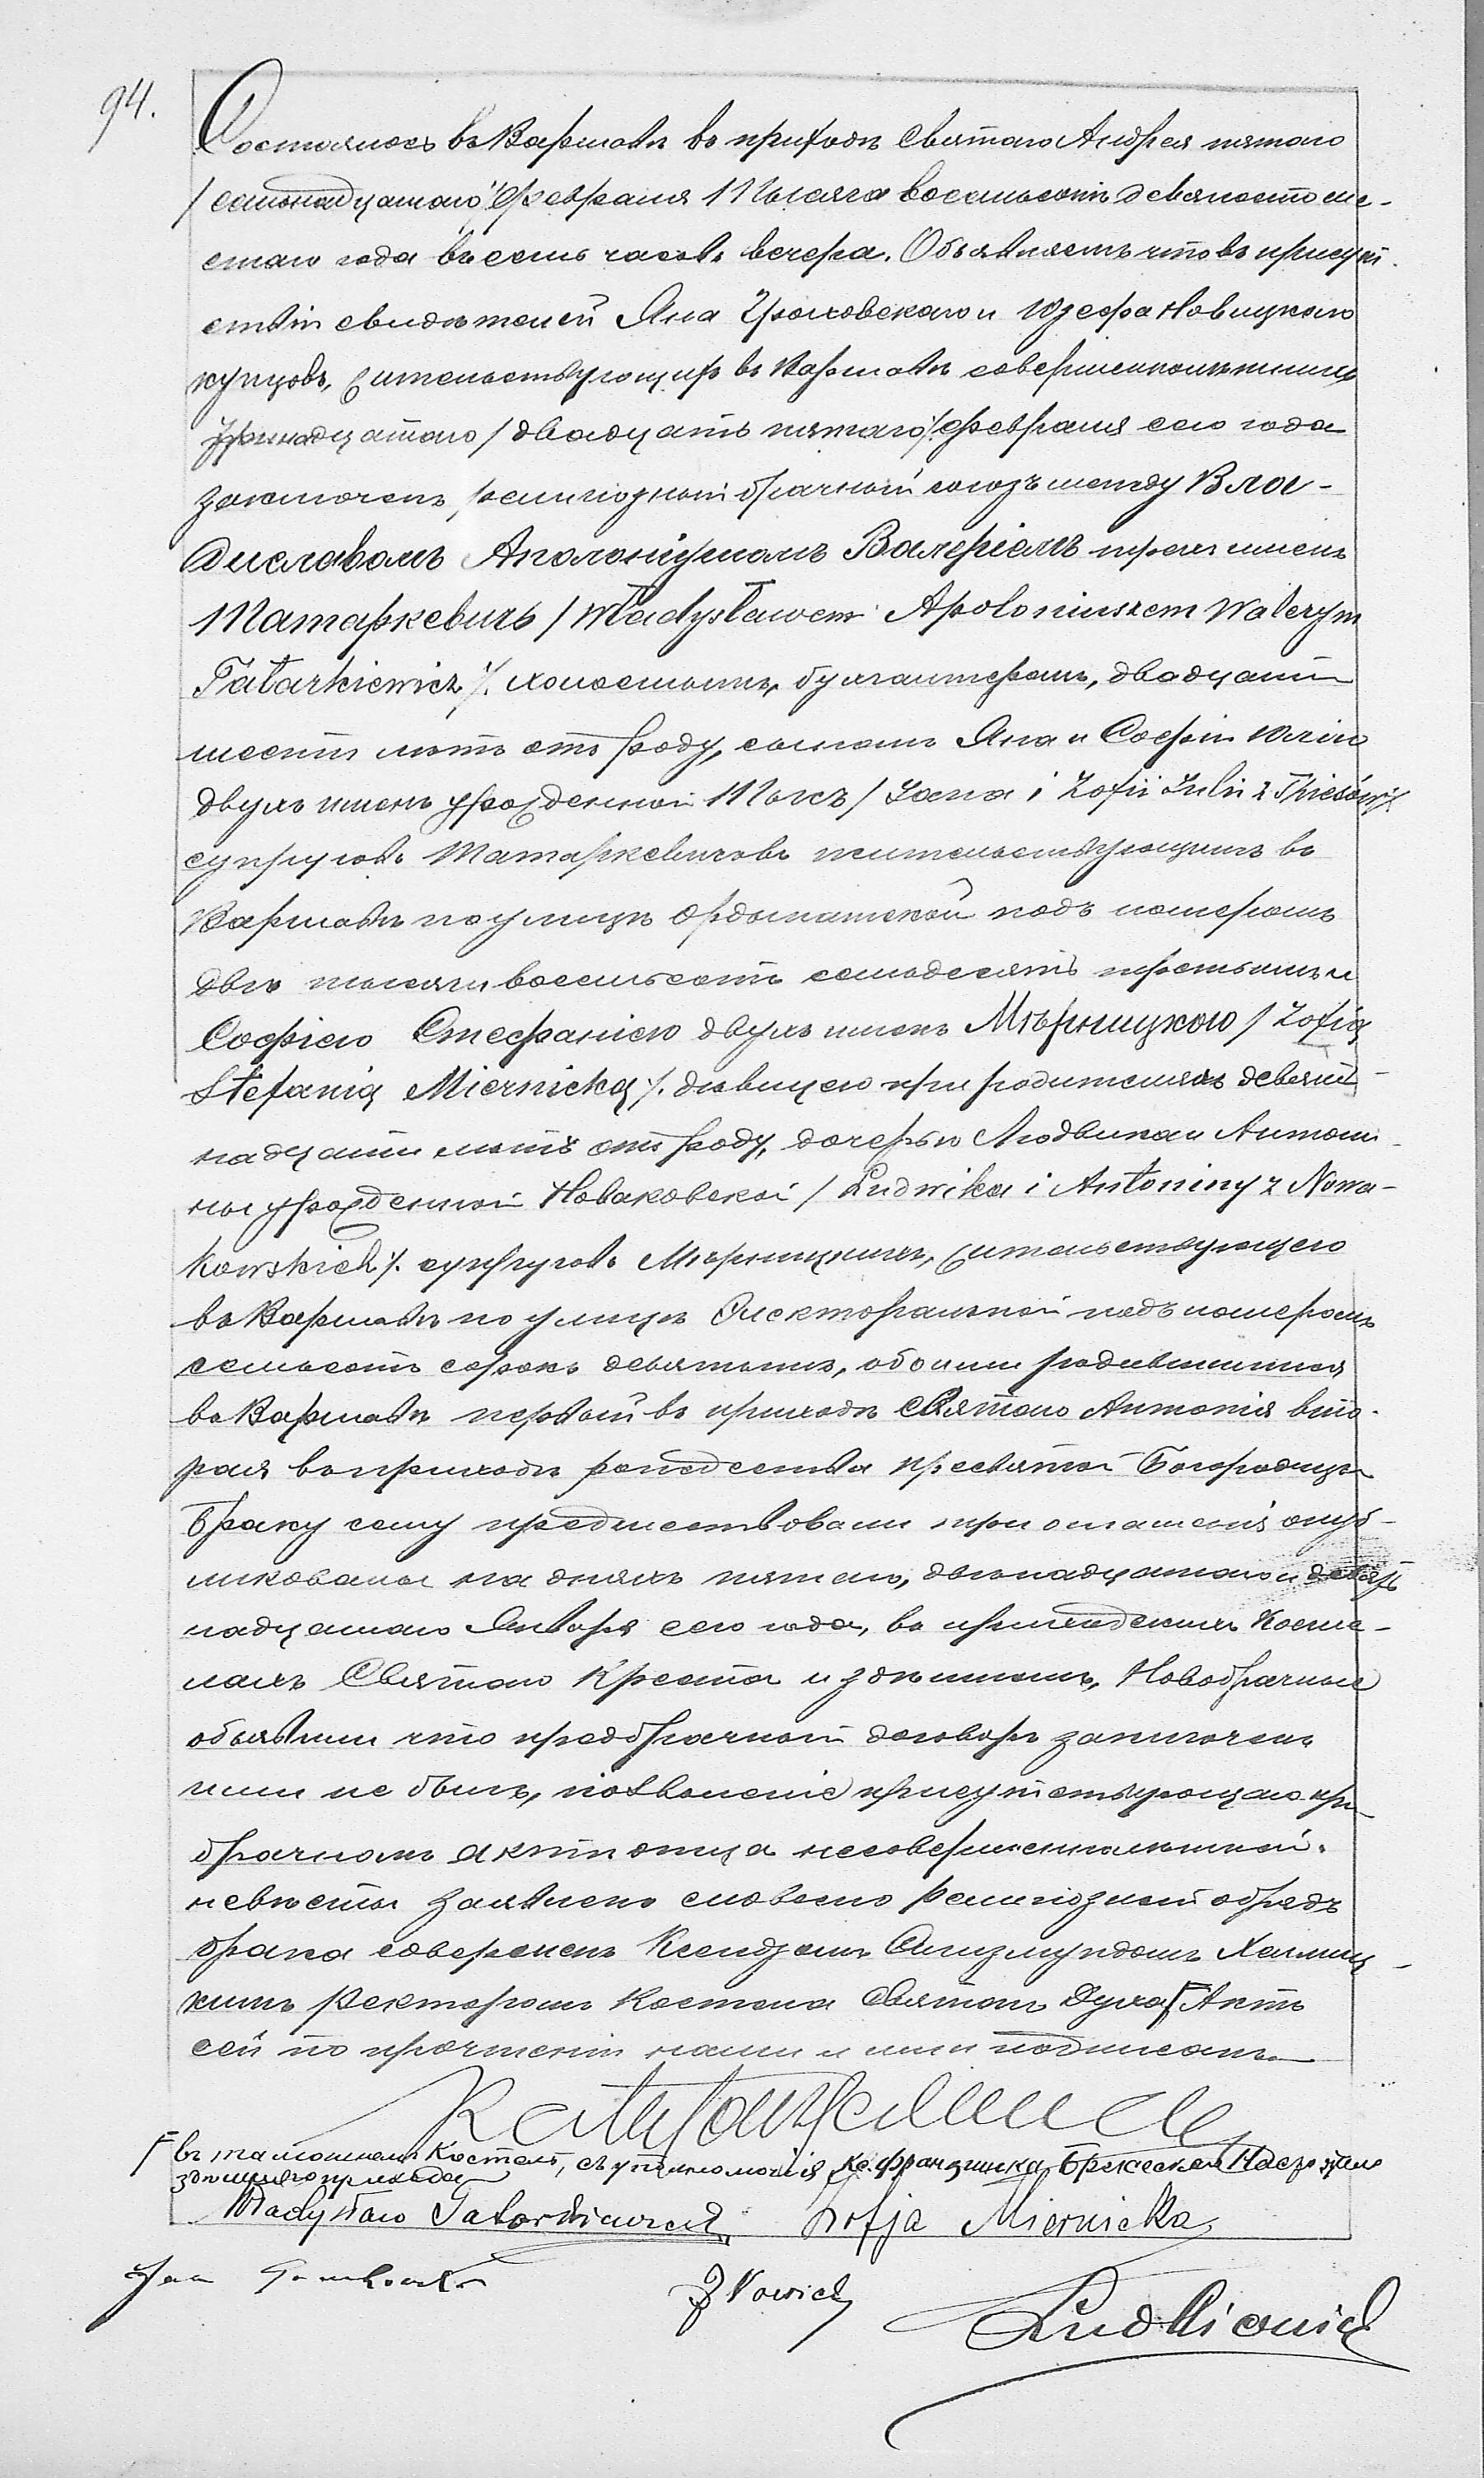 94.
Состоялось въ Варшавѣ въ приходѣ Святаго Андрея пятаго
/семнадцатаго/ Февраля Тысяча восемьсотъ девяносто ше-
стаго года въ семь часовъ вечера. Объявляемъ что въ присут-
ствіи свидѣтелей Яна Гроховскаго и Юзефа Новицкаго
купцовъ, жительствующихъ въ Варшавѣ совершеннолѣтнихъ
тринадцатаго /двадцать пятаго/ февраля сего года
заключенъ религіозный брачный союзъ между Вла-
диславомъ Аполонiушомъ Валеріемъ трехъ именъ
Татаркевичъ /Władysławem Apoloniuszem Walerym
Tatarkiewicz/. холостымъ, бухгалтеромъ, двадцати
шести лѣтъ отъ роду, сыномъ Яна и Софіи Юліи
двухъ именъ урожденной Тысъ /Jana i Zofii Julii z Thiesów/.
супруговъ Татаркевичовъ жительствующимъ въ
Варшавѣ по улицѣ Ордынатской подъ номеромъ
двѣ тысячи восемьсотъ семьдесятъ третьимъ и
Софіею Стефаніею двухъ именъ Мѣрницкою /Zofią
Stefanią Miernicką/. дѣвицею при родителяхъ девят-
надцати лѣтъ отъ роду, дочерью Людвика и Антони-
ны урожденной Новаковской /Ludwika i Antoniny z Nowa-
kowskich/. супруговъ Мѣрницкихъ, жительствующею
въ Варшавѣ по улицѣ Электоральной подъ номеромъ
семьсотъ сорокъ девятымъ, обоими родившимися
въ Варшавѣ первый въ приходѣ Святаго Антонія вто-
рая въ приходѣ рождества пресвятой Богородицы
Браку сему предшествовали три оглашенія опуб-
ликованы на дняхъ пятаго, двѣнадцатаго и девят-
надцатаго Января сего года, въ приходскихъ косте-
лахъ Святаго Креста и здѣшнемъ, Новобрачные
объявили что предбрачный договоръ заключенъ
ими не былъ, позволеніе присутствующаго при
брачномъ актѣ отца несовершеннолѣтней
невѣсты заявлено словесно религіозный обрядъ
брака совершенъ Ксендзомъ Сигизмундомъ
кимъ Ректоромъ Костела Святаго Духа Актъ
сей по прочтеніи нами и ими подписанъ
въ тамошнемъ Костелѣ, съ уполномочія Кс. Францишка
здѣшняго прихода
Władysław Tatarkiewicz Zofja Miernicka
Jan J Nowicki